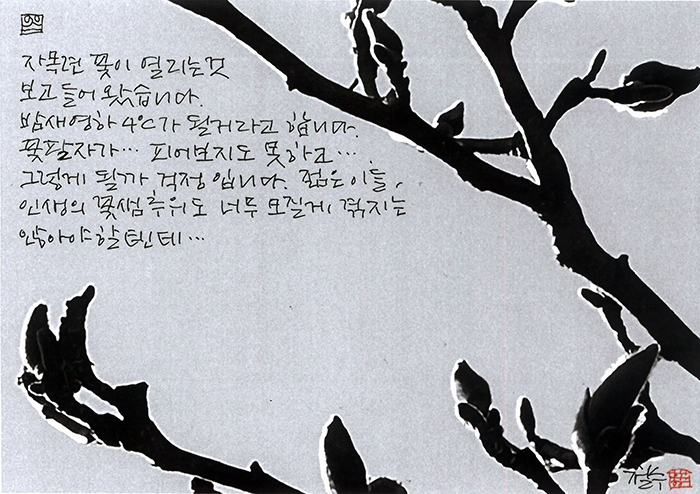 자목련 꽃이 열리는것
보고 들어 왔습니다.
밤새영하 4℃가 될거라고 합니다.
꽃팔자가… 피어보지도 못하고…
그렇게 될까 걱정입니다. 젊은이들,
인생의 꽃샘추위도 너무 모질게, 겪지는
않아야할텐데…
철수